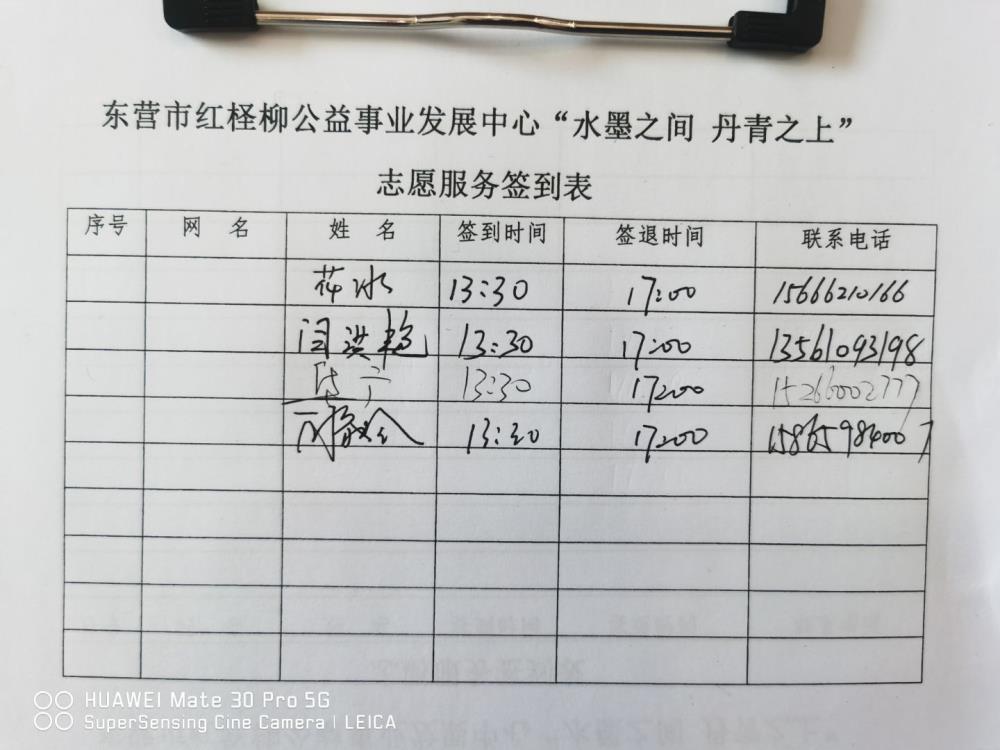 东营市红柽柳公益事业发展中心“水墨之间 丹青之上”
志愿服务签到表
序号 网 名 姓 名 签到时间 签退时间 联系电话
花冰 13:30 17:00 15666210166
闫洪艳 13:30 17:00 13561093198
13:30 17:00 15266002777
13:30 17:00 15865984007
HUAWEI Mate 30 Pro 5G
SuperSensing Cine Camera | LEICA